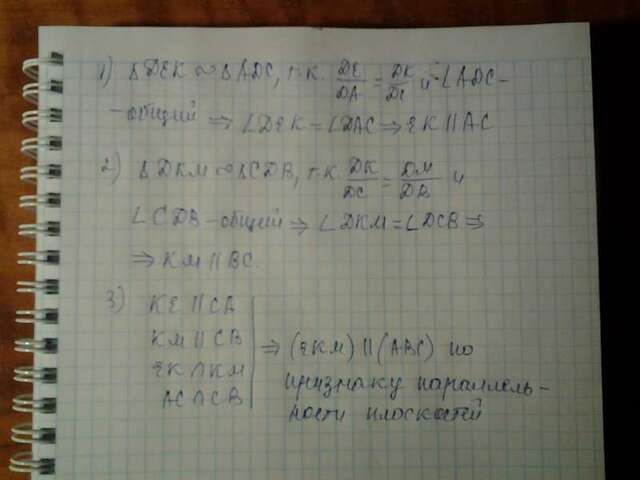 1) ΔDEK ∾ ΔADC, т.к. DE/DA = DK/DC и ∠ADC –
– общий ⇒ ∠DEK = ∠DAC ⇒ EK || AC
2) ΔDKM ∾ ΔCDB, т.к. DK/DC = DM/DB и
∠CDB – общий ⇒ ∠DKM = ∠DCB ⇒
⇒ KM || BC.
3) KE || CA
KM || CB
EK ∩ KM
AC ∩ CB
⇒ (EKM) || (ABC) по
признаку параллель-
ности плоскостей